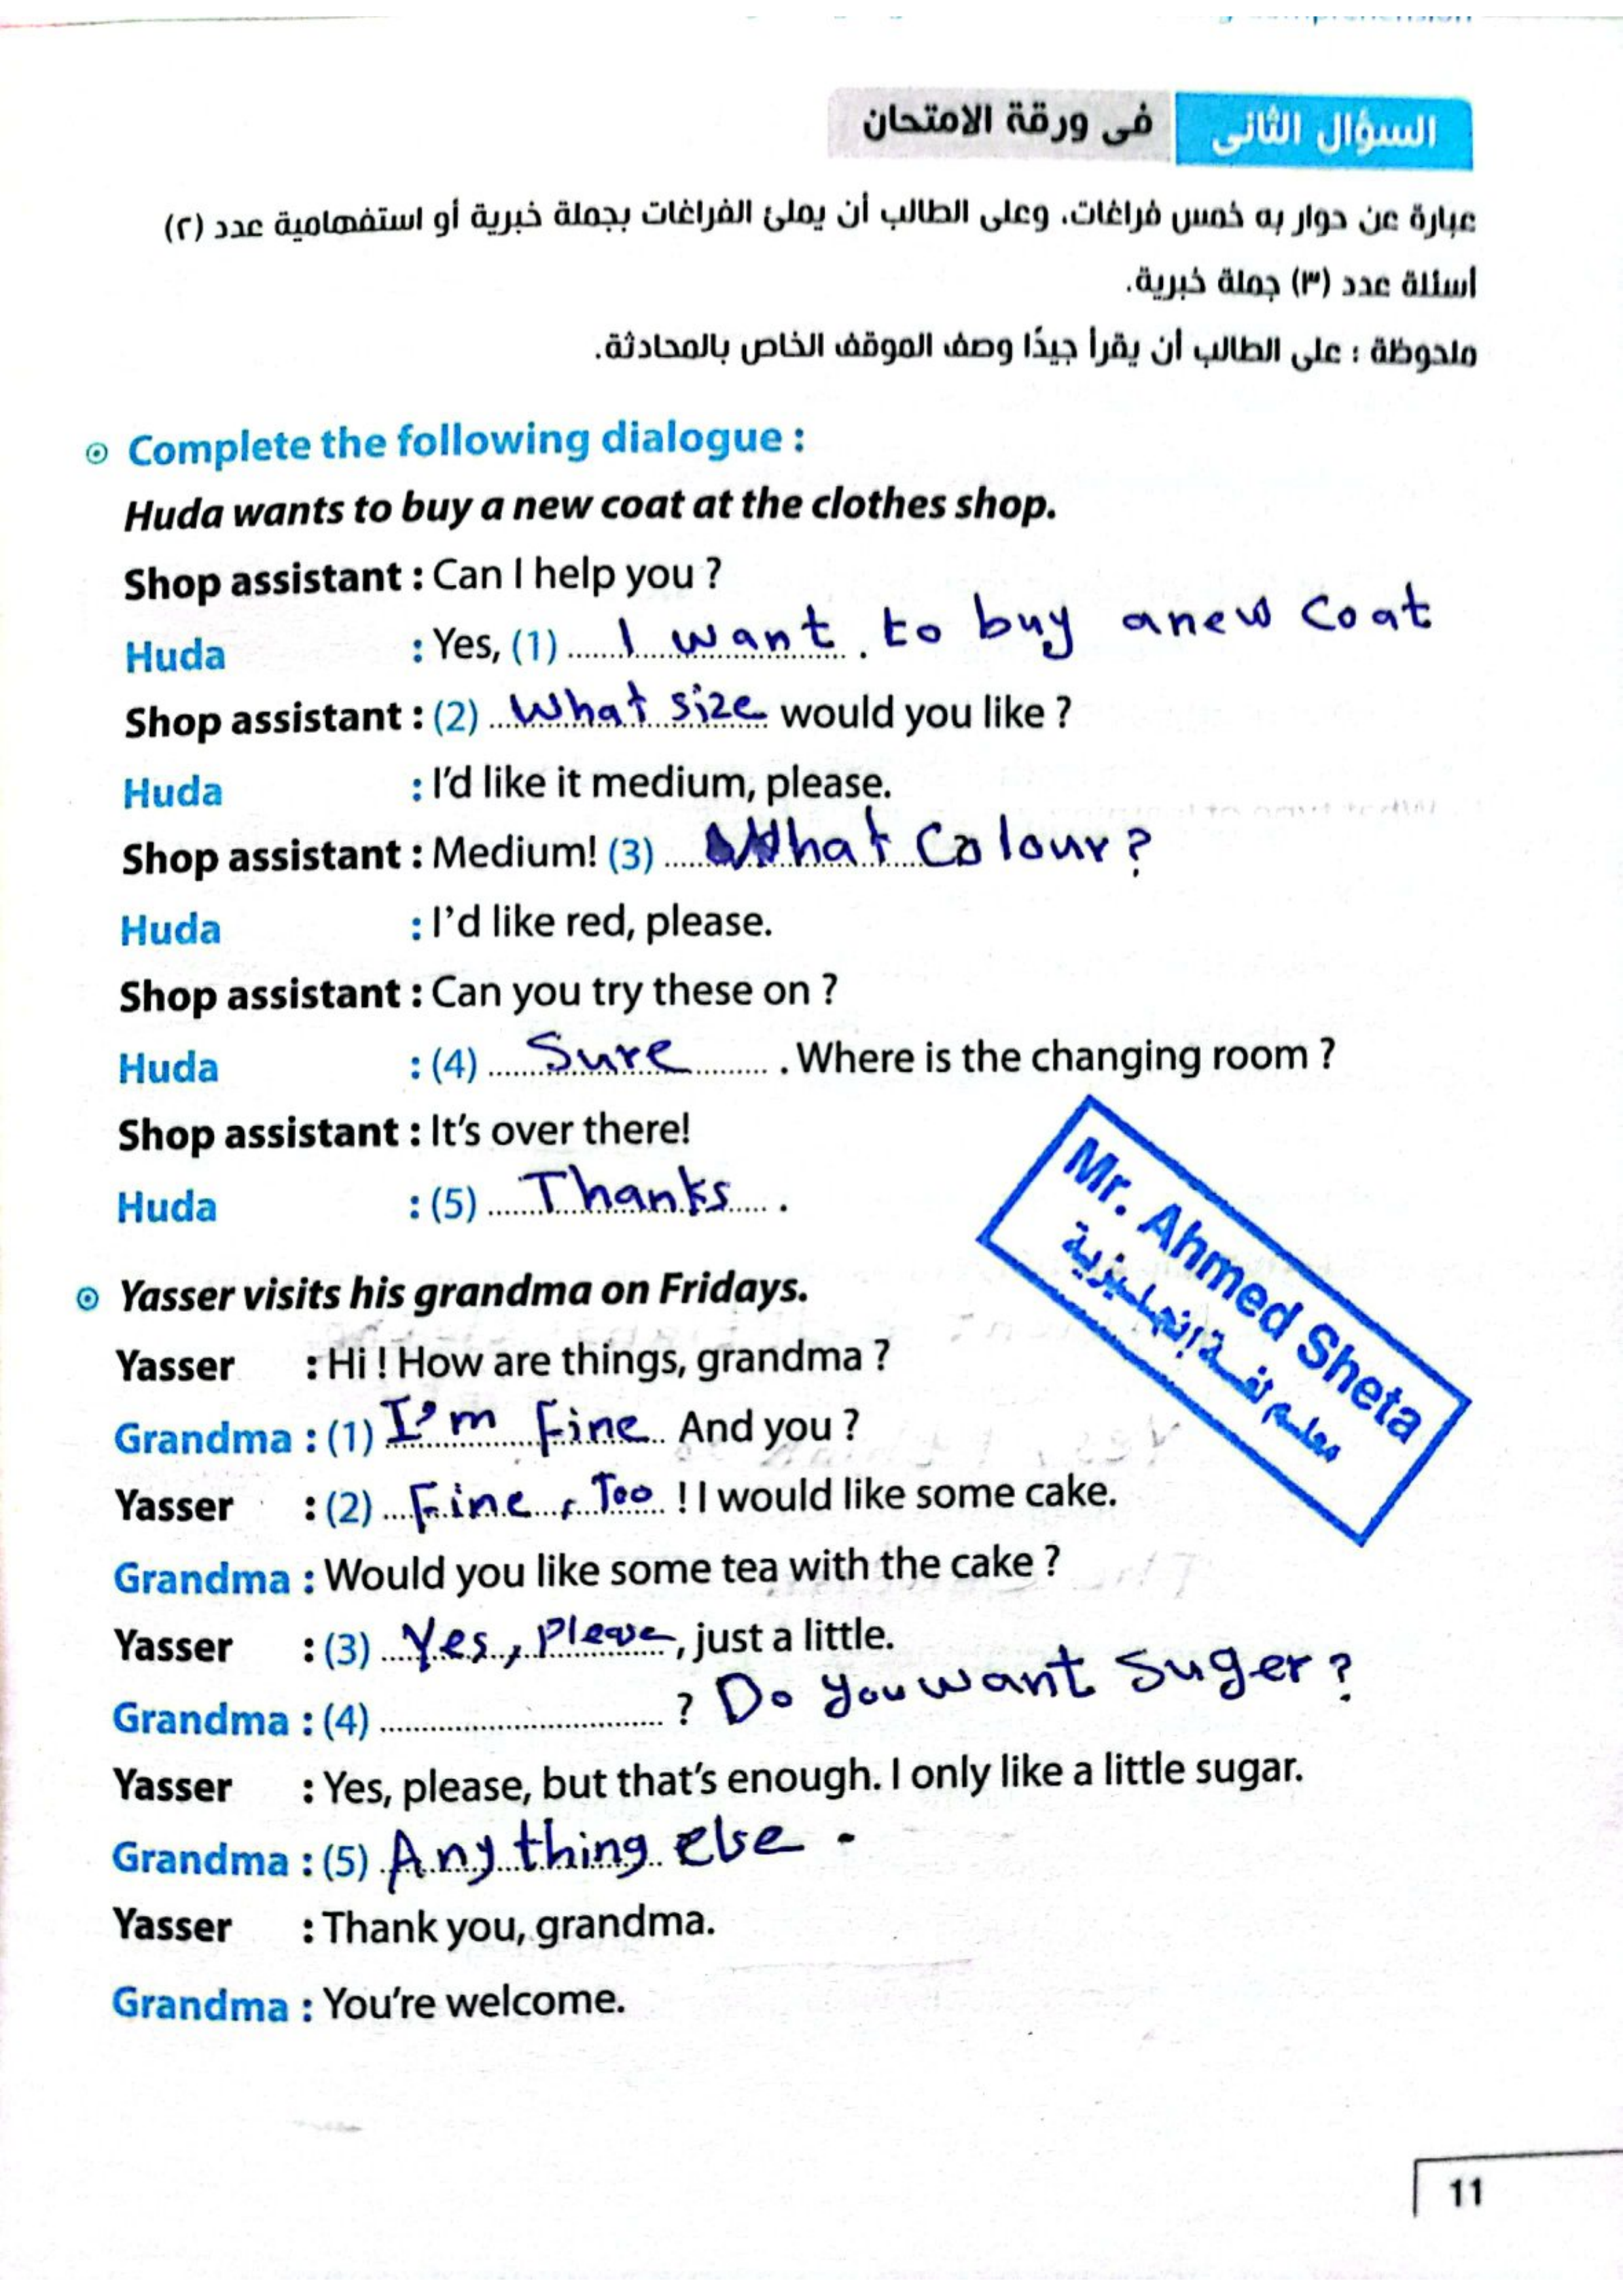 السؤال الثانى فى ورقة الامتحان
عبارة عن حوار به خمس فراغات، وعلى الطالب أن يملئ الفراغات بجملة خبرية أو استفهامية عدد (٢)
أسئلة عدد (٣) جملة خبرية.
ملحوظة : على الطالب أن يقرأ جيدًا وصف الموقف الخاص بالمحادثة.
Complete the following dialogue :
Huda wants to buy a new coat at the clothes shop.
Shop assistant : Can I help you ?
Huda : Yes, (1) I want to buy anew coat
Shop assistant : (2) What size would you like ?
Huda : I'd like it medium, please.
Shop assistant : Medium! (3) What Colour?
Huda : I'd like red, please.
Shop assistant : Can you try these on ?
Huda : (4) Sure . Where is the changing room ?
Shop assistant : It's over there!
Huda : (5) Thanks .
Mr. Ahmed Sheta
معلم لغة إنجليزية
Yasser visits his grandma on Fridays.
Yasser : Hi ! How are things, grandma ?
Grandma : (1) I'm Fine And you ?
Yasser : (2) Fine, Too ! I would like some cake.
Grandma : Would you like some tea with the cake ?
Yasser : (3) Yes, Please, just a little.
Grandma : (4) ? Do you want Suger?
Yasser : Yes, please, but that's enough. I only like a little sugar.
Grandma : (5) Any thing else .
Yasser : Thank you, grandma.
Grandma : You're welcome.
11